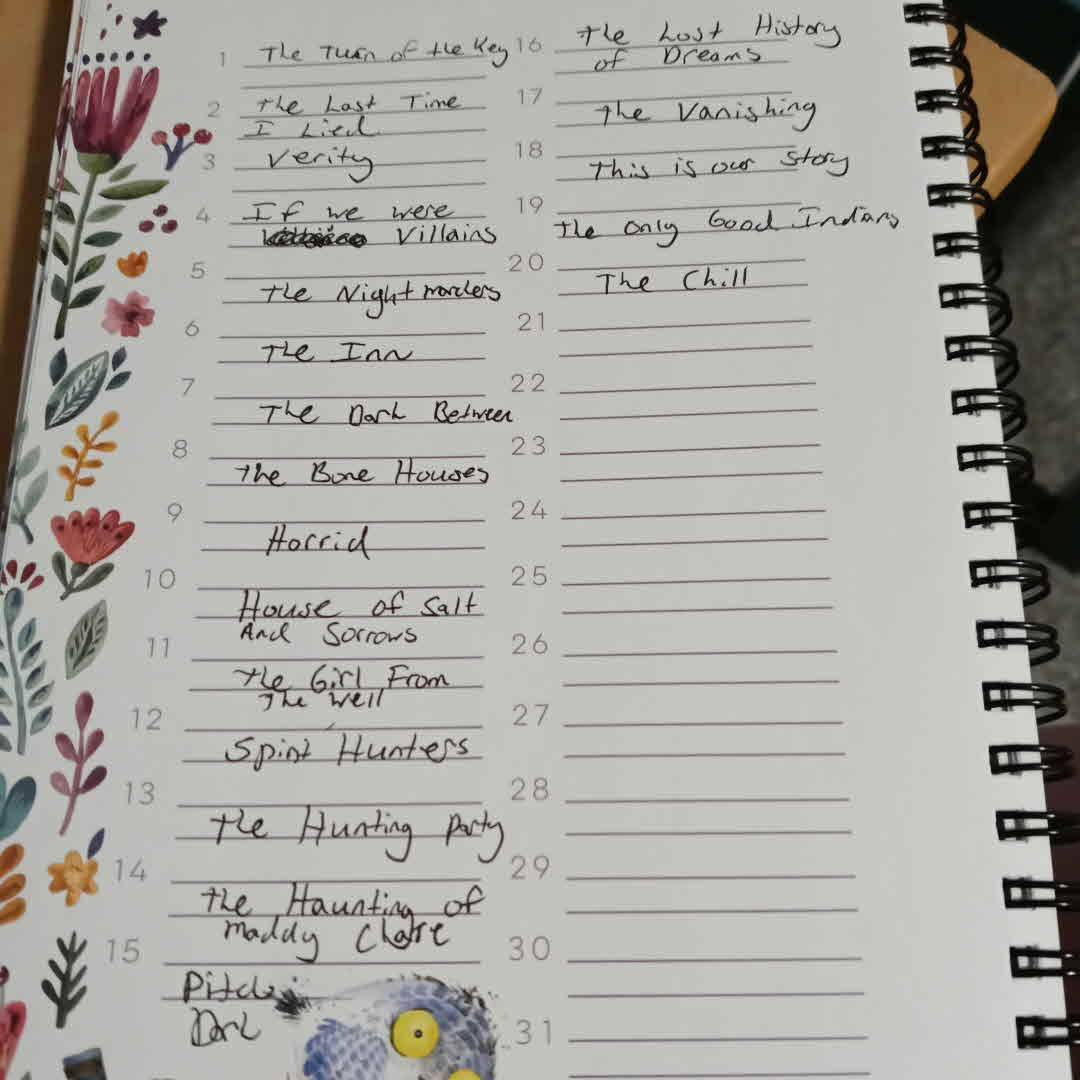 1 The Turn of the Key
2 The Last Time
I Lied
3 Verity
4 If we were
Villains
5
The Nightmarders
6
The Inn
7
The Dark Between
8
The Bone Houses
9
Horrid
10
House of Salt
And Sorrows
11
The Girl From
The Well
12
Spirit Hunters
13
The Hunting Party
14
The Haunting of
Maddy Clare
15
Pitch
Dark
16 The Lost History
of Dreams
17
The Vanishing
18
This is our Story
19
The only Good Indians
20
The Chill
21
22
23
24
25
26
27
28
29
30
31